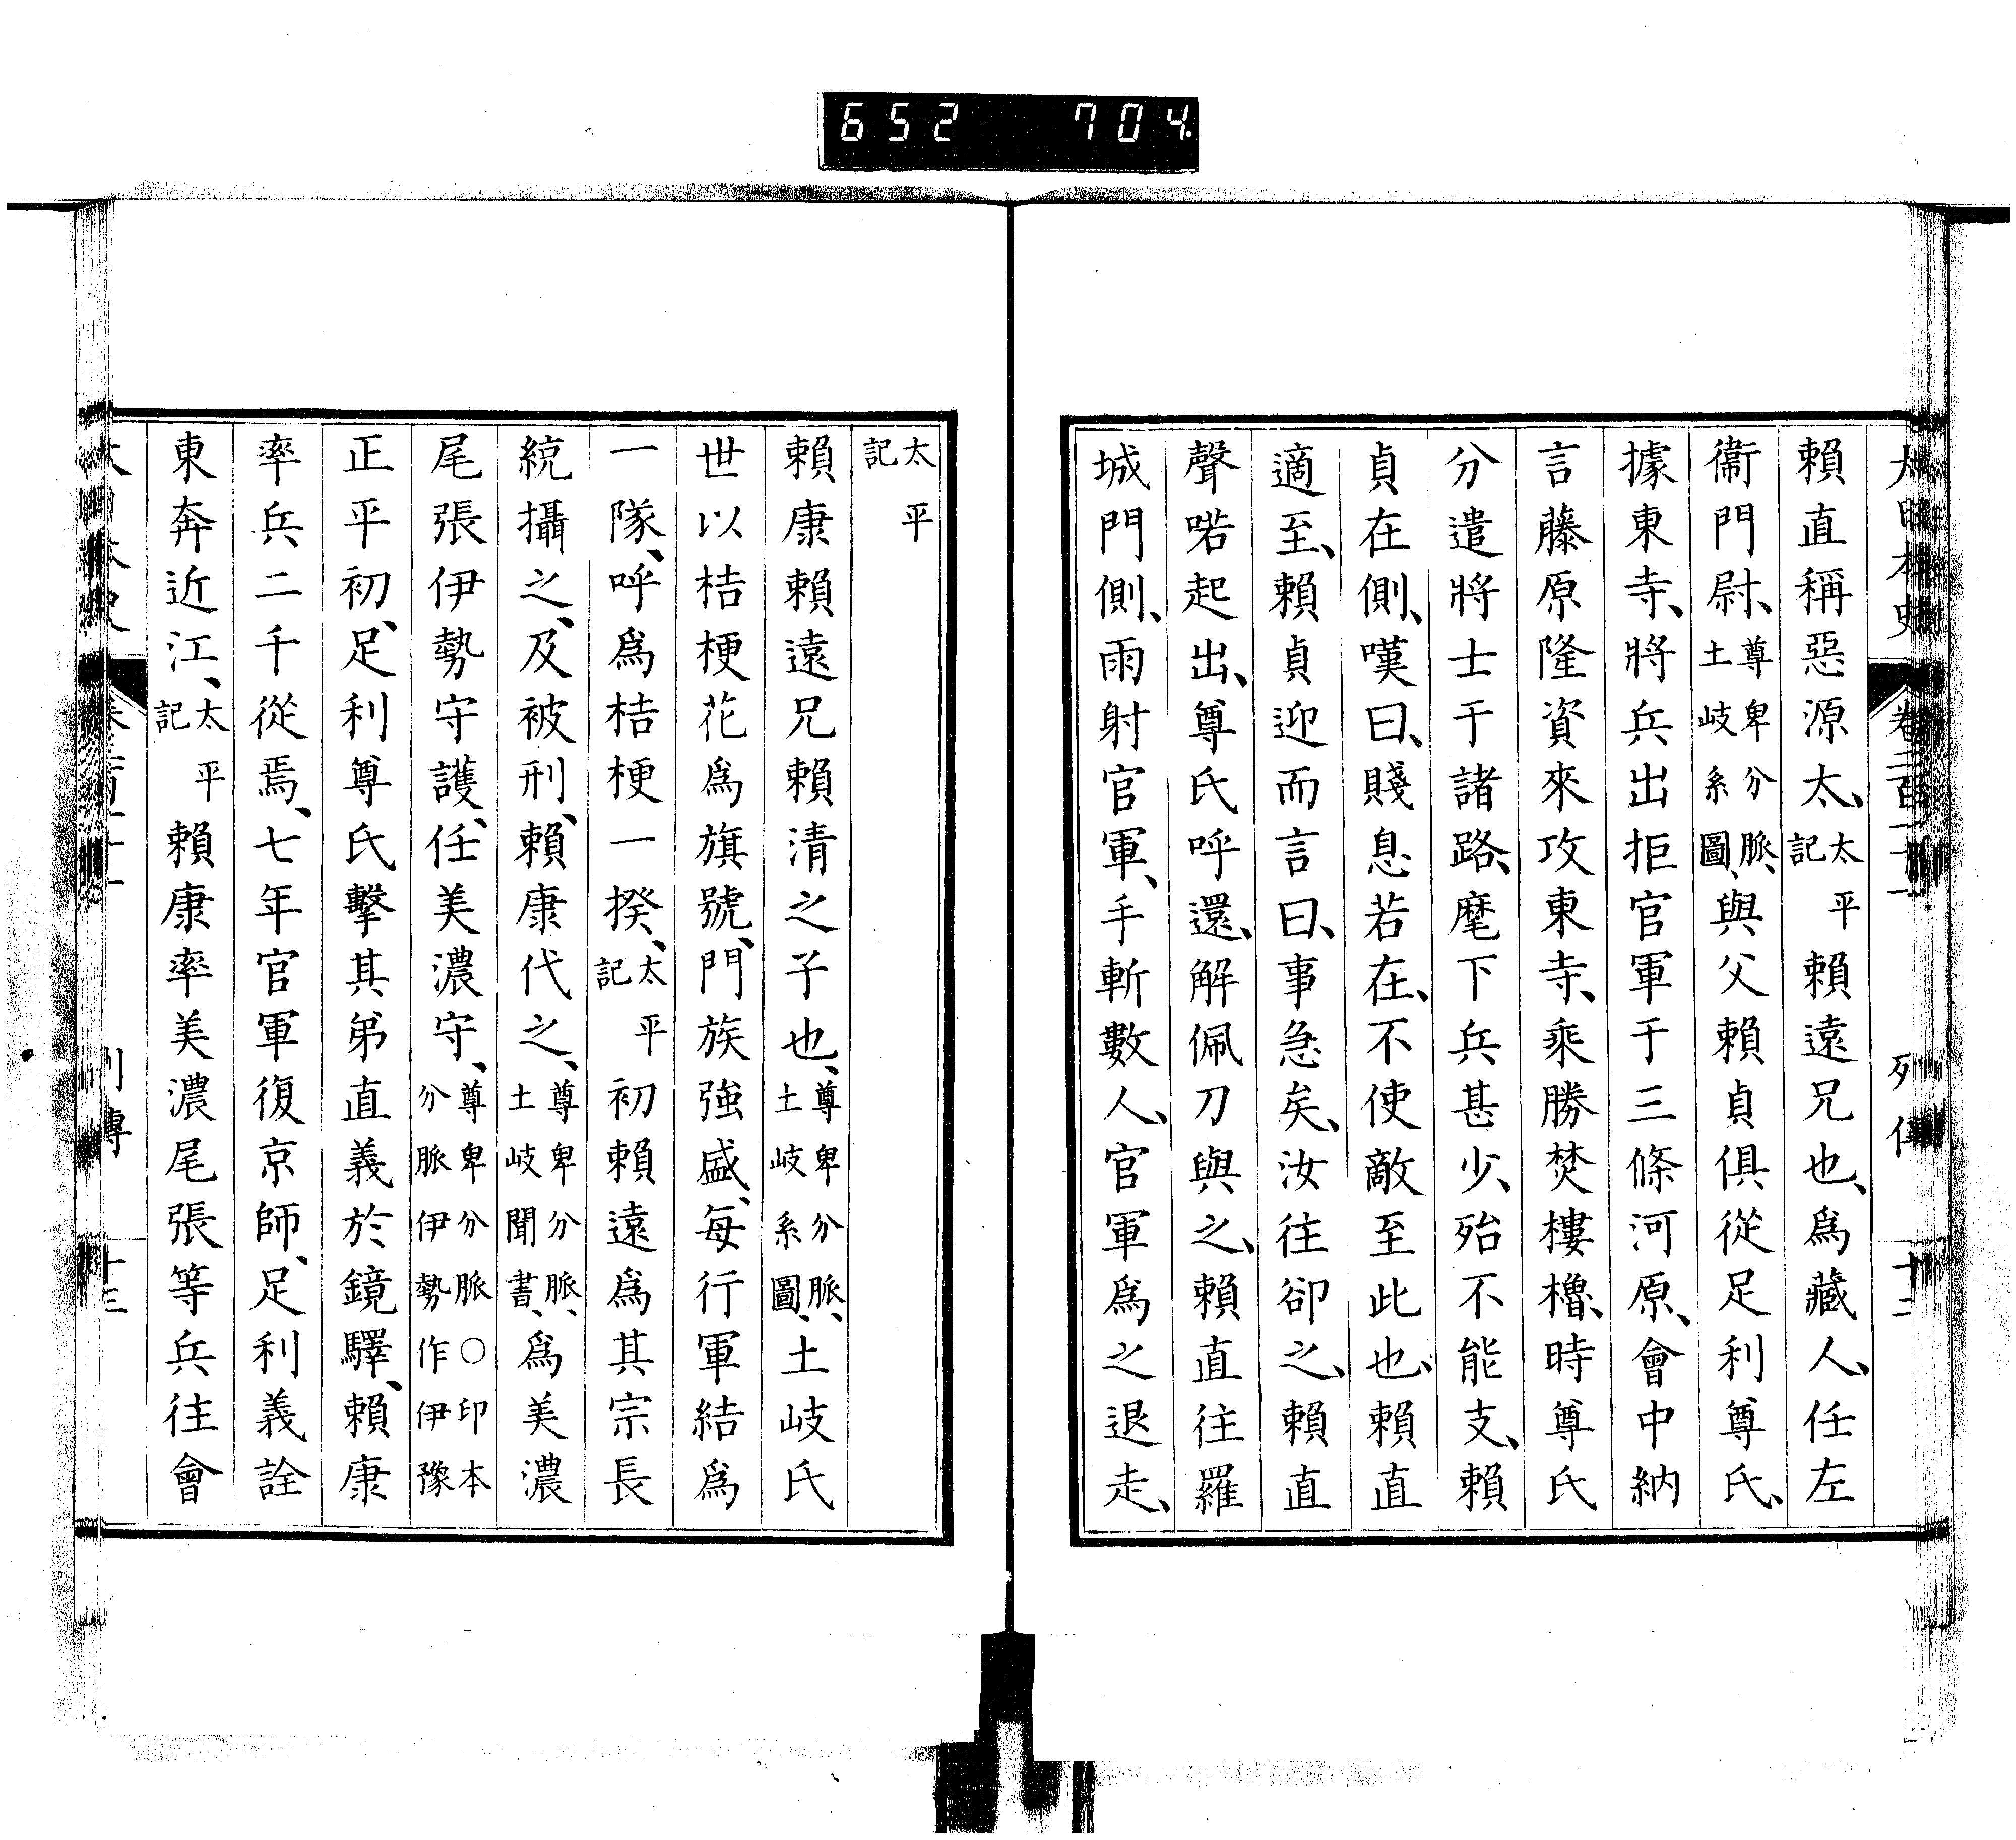 652 704
大日本史 卷二百 列傳 十二
賴直稱惡源太、太平記賴遠兄也、爲藏人、任左
衞門尉、尊卑分脈、土岐系圖、與父賴貞俱從足利尊氏、
據東寺、將兵出拒官軍于三條河原、會中納
言藤原隆資來攻東寺、乘勝焚樓櫓、時尊氏
分遣將士于諸路、麾下兵甚少、殆不能支、賴
貞在側、嘆曰、賤息若在、不使敵至此也、賴直
適至、賴貞迎而言曰、事急矣、汝往卻之、賴直
聲喏起出、尊氏呼還、解佩刀與之、賴直往羅
城門側、雨射官軍、手斬數人、官軍爲之退走、
太平記
賴康賴遠兄賴清之子也、尊卑分脈、土岐系圖、土岐氏
世以桔梗花爲旗號、門族強盛、每行軍結爲
一隊、呼爲桔梗一揆、太平記初賴遠爲其宗長
統攝之、及被刑、賴康代之、尊卑分脈、土岐聞書、爲美濃
尾張伊勢守護、任美濃守、尊卑分脈○印本分脈伊勢作伊豫
正平初、足利尊氏擊其弟直義於鏡驛、賴康
率兵二千從焉、七年官軍復京師、足利義詮
東奔近江、太平記賴康率美濃尾張等兵往會
列傳 十三